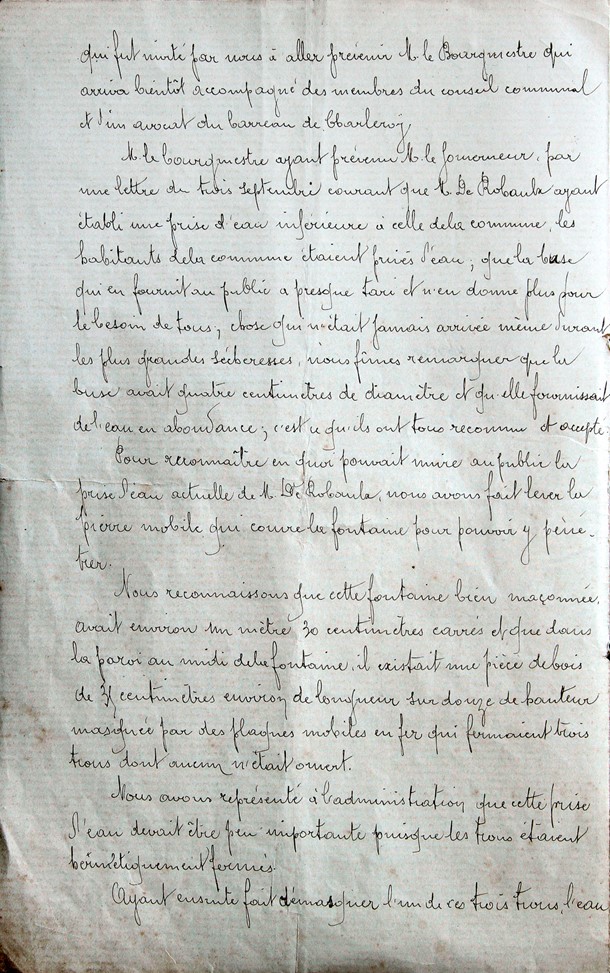 qui fut invité par nous à aller prévenir M. le Bourgmestre qui
arriva bientôt accompagné des membres du conseil communal
et d'un avocat du barreau de Charleroy,
M. le bourgmestre ayant prévenu M. le Gouverneur, par
une lettre du trois septembre courant que M. De Robaulx ayant
établi une prise d'eau inférieure à celle de la commune, les
habitants de la commune étaient privés d'eau; que la buse
qui en fournit au public a presque tari et n'en donne plus pour
le besoin de tous; chose qui n'était jamais arrivée même durant
les plus grandes sécheresses, nous fîmes remarquer que la
buse avait quatre centimètres de diamètre et qu'elle fournissait
de l'eau en abondance; c'est ce qu'ils ont tous reconnu et accepté.
Pour reconnaître en quoi pouvait nuire au public la
prise d'eau actuelle de M. De Robaulx, nous avons fait lever la
pierre mobile qui couvre la fontaine pour pouvoir y péné-
trer.
Nous reconnaissons que cette fontaine bien maçonnée,
avait environ un mètre 30 centimètres carrés et que dans
la paroi au midi de la fontaine, il existait une pièce de bois
de centimètres environ de longueur sur douze de hauteur
masquée par des plaques mobiles en fer qui fermaient trois
trous dont aucun n'était ouvert.
Nous avons représenté à l'administration que cette prise
d'eau devait être peu importante puisque les trous étaient
hermétiquement fermés.
Ayant ensuite fait démasquer l'un de ces trois trous, l'eau